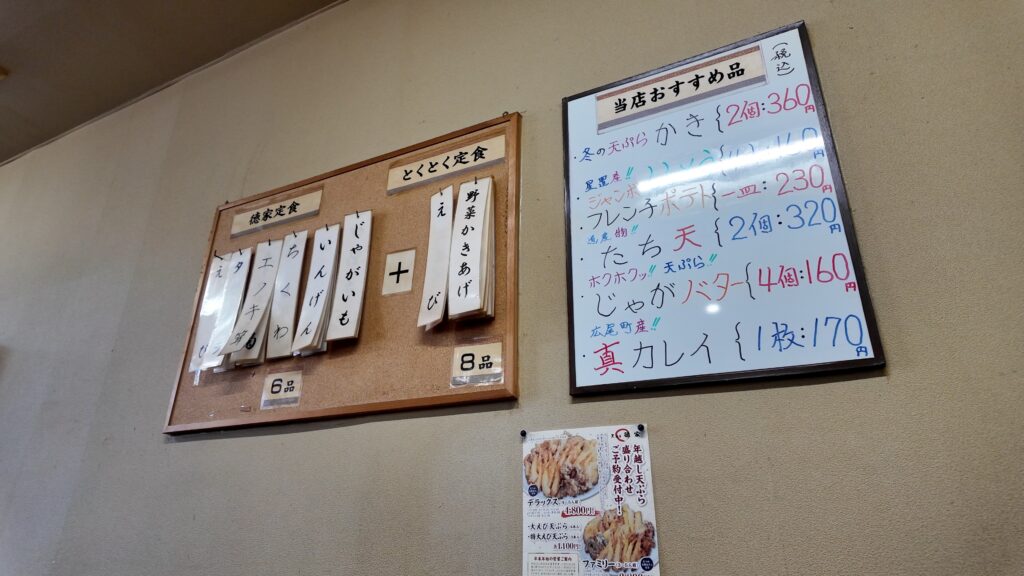 徳家定食
とくとく定食
えび
エノキ
ちくわ
いんげん
じゃがいも
+
えび
野菜かきあげ
6品
8品
当店おすすめ品
(税込)
・冬の天ぷら かき{2個:360円
星置産!!
・ジャンボ
フレンチポテト{一皿:230円
道産物!!
・たち天{2個:320円
ホクホクッ!!天ぷら!!
・じゃがバター{4個:160円
広尾町産!!
・真カレイ{1枚:170円
年越し天ぷら
盛り合わせ
ご予約受付中!
デラックス
4,800円
・大えび天ぷら
・特大えび天ぷら
各1,100円
ファミリー